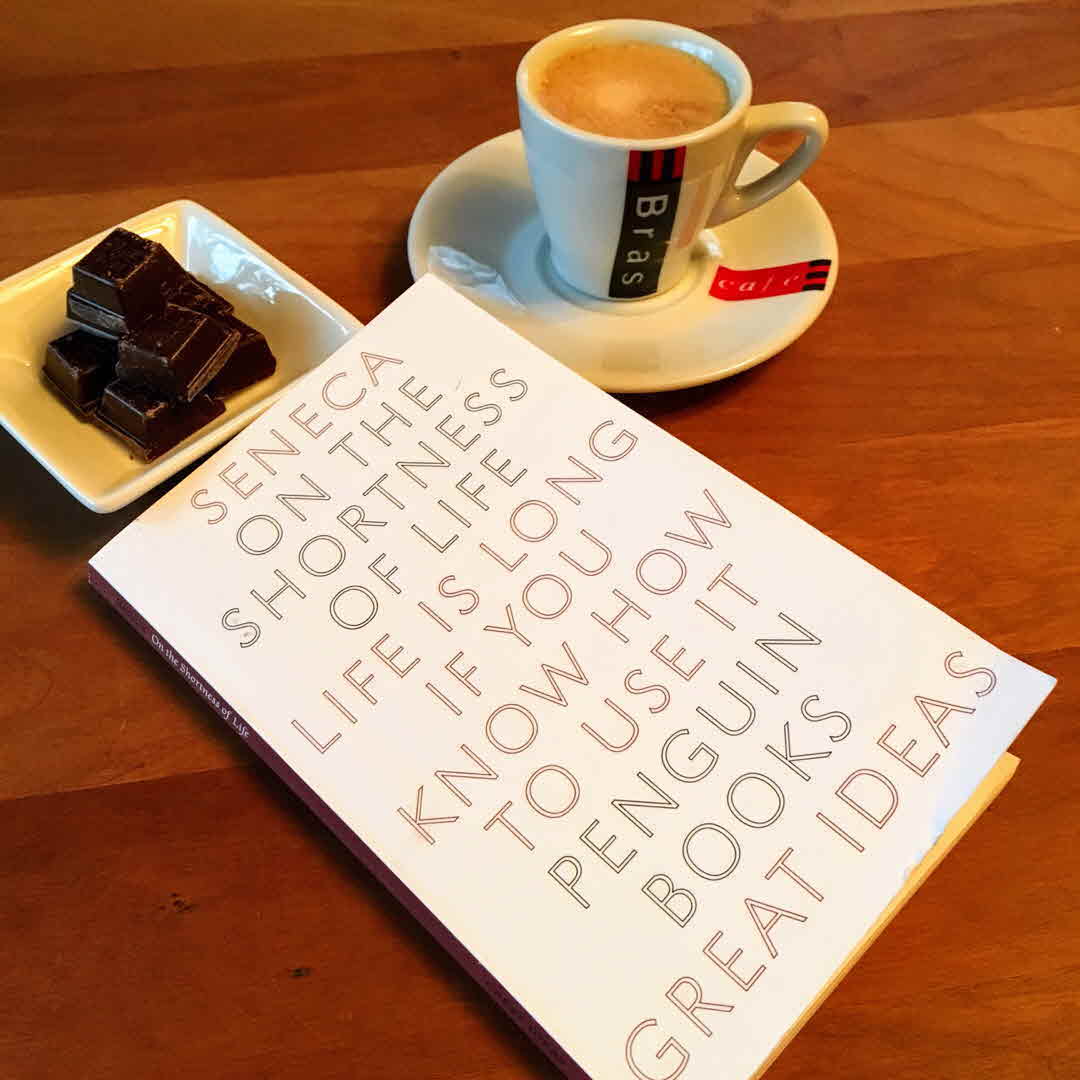 Bras
cafe
SENECA
ON THE
SHORTNESS
OF LIFE
LIFE IS LONG
IF YOU
KNOW HOW
TO USE IT
PENGUIN
BOOKS
GREAT IDEAS
On the Shortness of Life